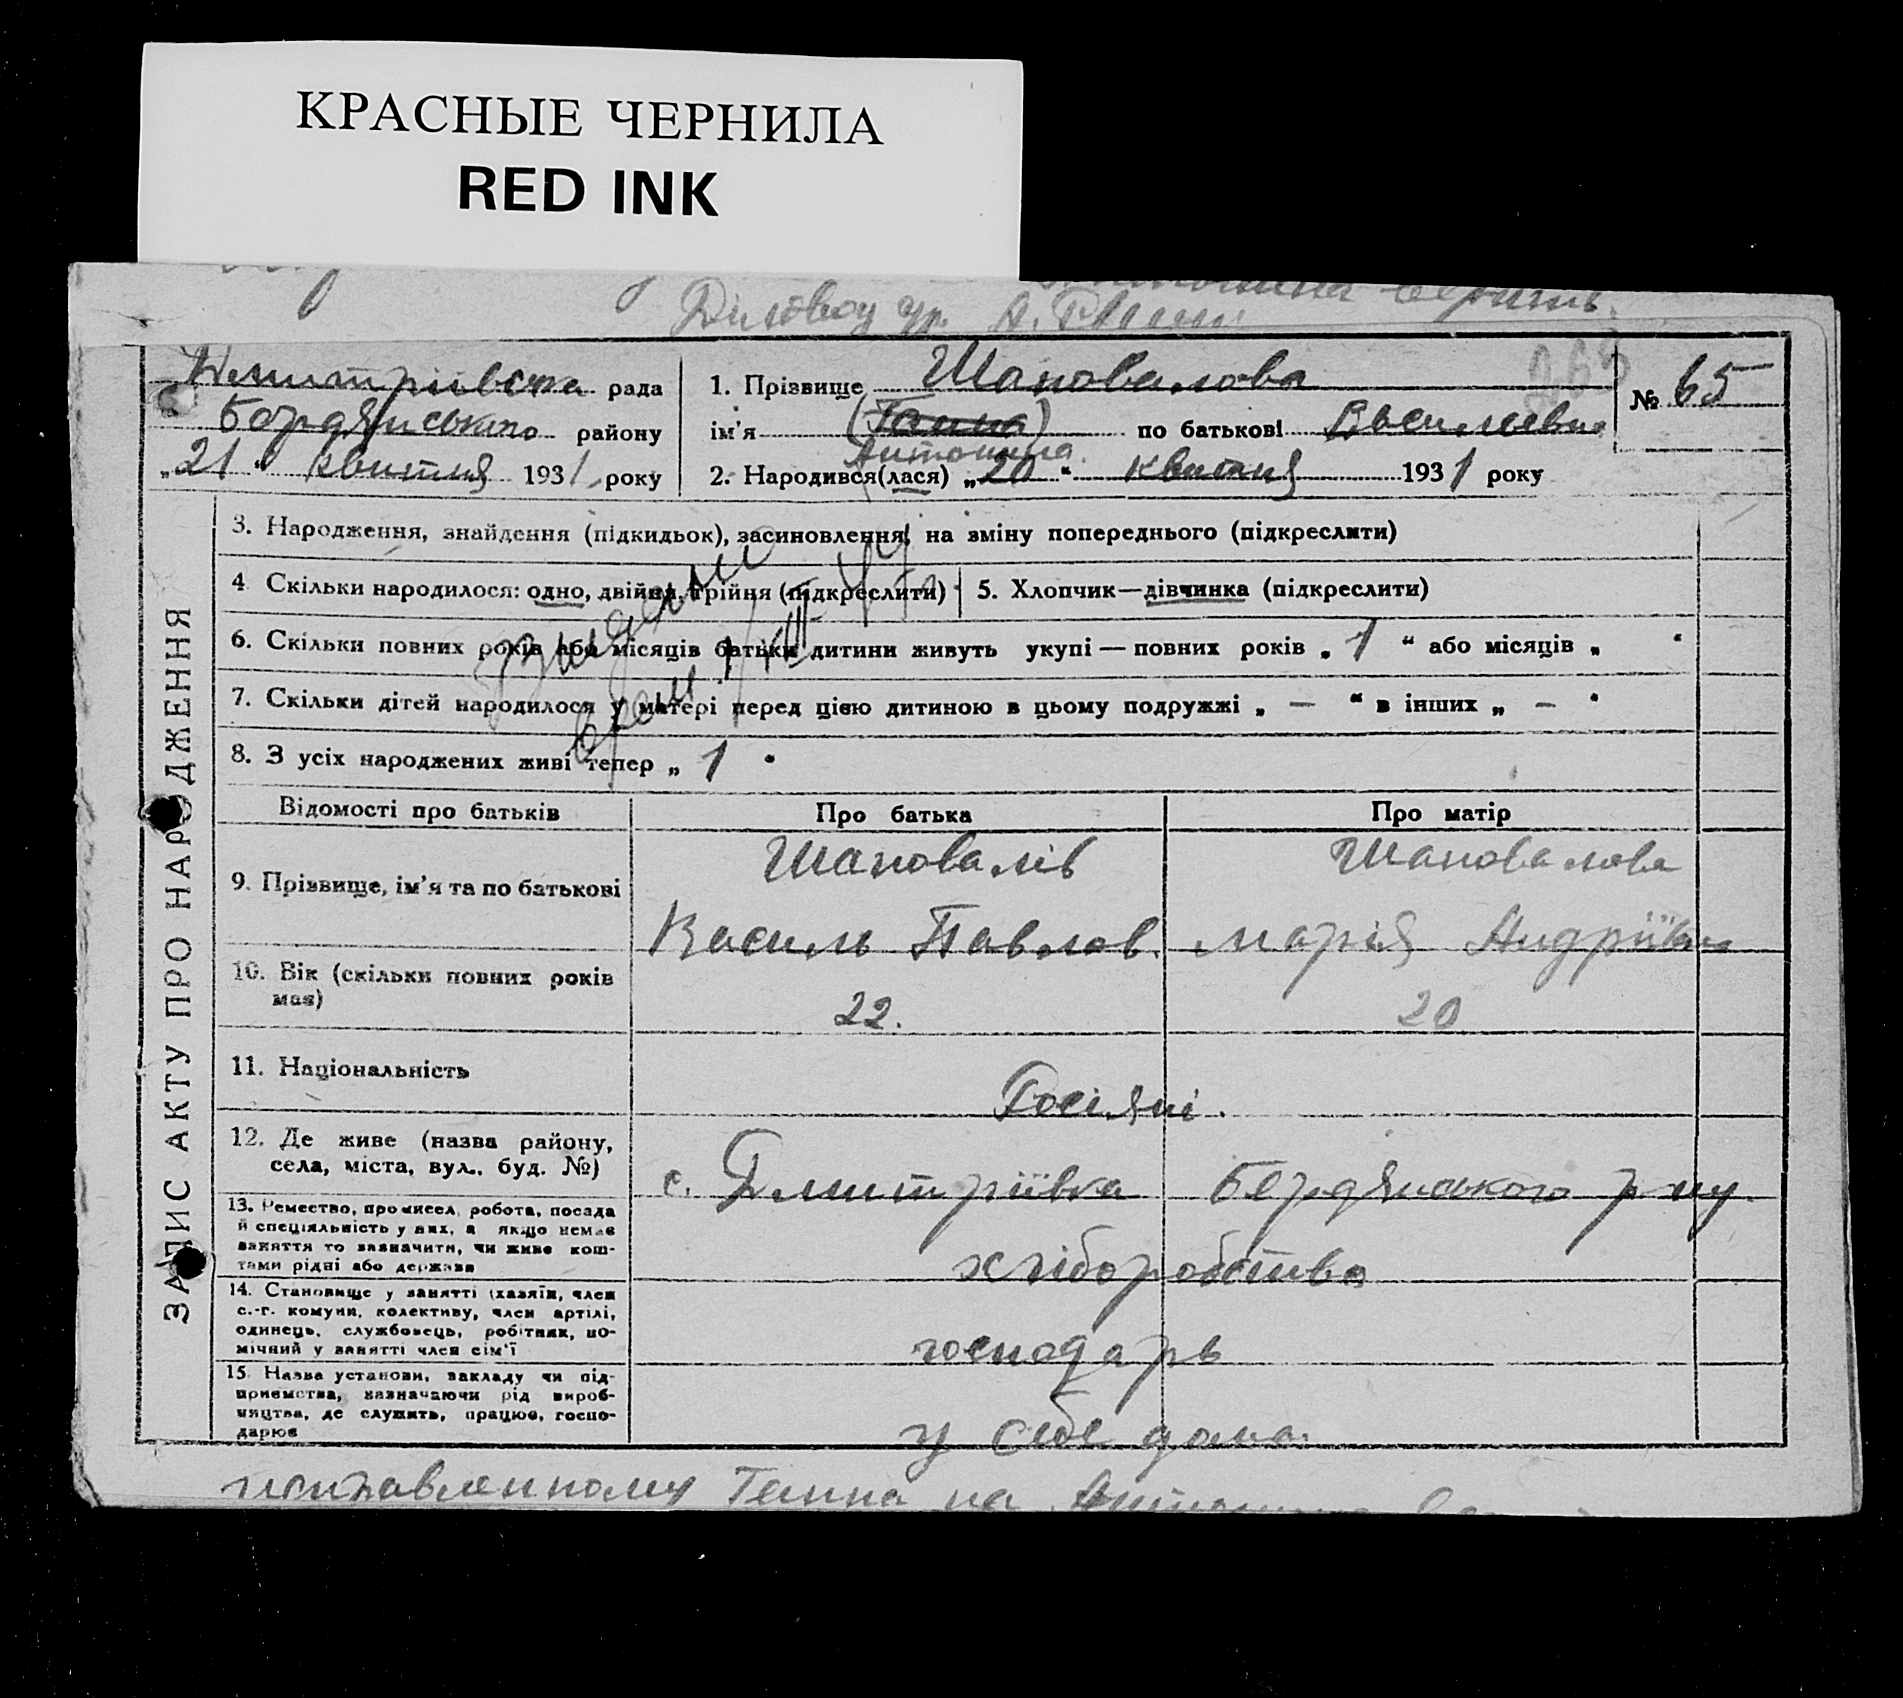 КРАСНЫЕ ЧЕРНИЛА
RED INK
Діловод
Дмитрівська рада
Бердянського району
„21“ квітня 1931 року
1. Прізвище Шаповалова
ім'я (Ганна) по батькові Васильевна
Антонина
2. Народився(лася) „20“ квітня 1931 року
№ 65
ЗАПИС АКТУ ПРО НАРОДЖЕННЯ
3. Народження, знайдення (підкидьок), засиновлення, на зміну попереднього (підкреслити)
4 Скільки народилося: одно, двійня, трійня (підкреслити)
5. Хлопчик—дівчинка (підкреслити)
6. Скільки повних років або місяців батьки дитини живуть укупі — повних років „ 1 “ або місяців „ “
7. Скільки дітей народилося у матері перед цією дитиною в цьому подружжі „ — “ в інших „ — “
8. З усіх народжених живі тепер „ 1 “
Відомості про батьків
Про батька
Про матір
9. Прізвище, ім'я та по батькові
Шаповалів
Василь Павлов.
Шаповалова
Марія Андріївна
10. Вік (скільки повних років має)
22.
20
11. Національність
Росіяні.
12. Де живе (назва району,
села, міста, вул., буд. №)
с. Дмитріївка Бердянського р-ну.
13. Ремество, промисел, робота, посада
й спеціяльність у них, а якщо немає
заняття то зазначити, чи живе кош-
тами рідні або держави
хліборобство
14. Становище у занятті (хазяїн, член
с.-г. комуни, колективу, член артілі,
одинець, службовець, робітник, по-
мічний у занятті член сім'ї
господарь
15. Назва установи, закладу чи під-
приємства, казначаючи рід вироб-
ництва, де служить, працює, госпо-
дарює
у себе дома.
исправленному Ганна на